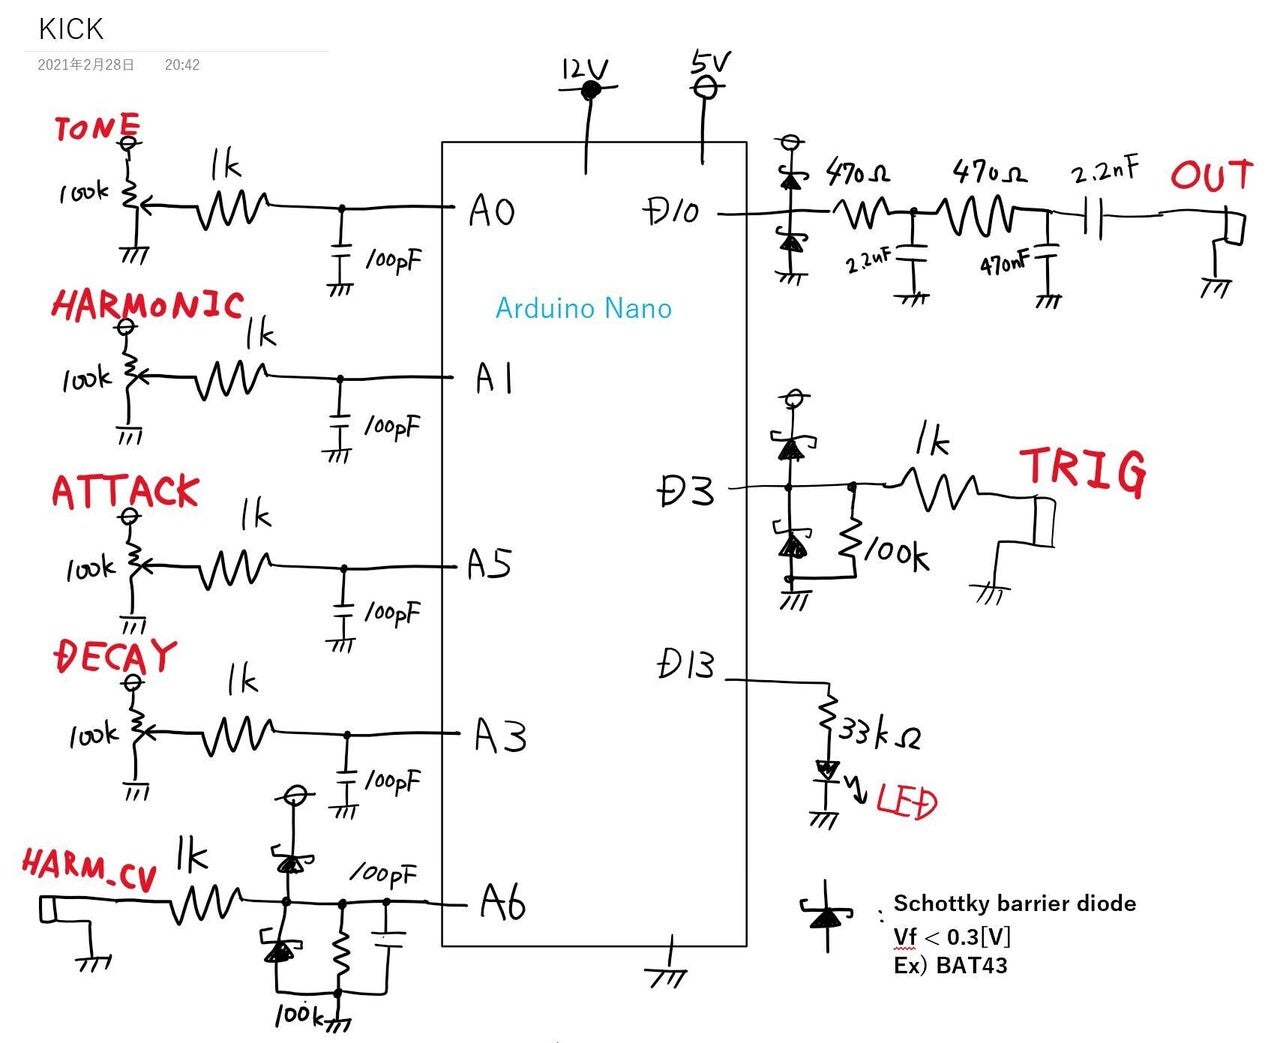 KICK
2021年2月28日 20:42
12V
5V
TONE
100k
1k
100pF
A0
HARMONIC
100k
1k
100pF
A1
ATTACK
100k
1k
100pF
A5
DECAY
100k
1k
100pF
A3
HARM_CV
1k
100pF
100k
A6
Arduino Nano
D10
470Ω
2.2uF
470Ω
470nF
2.2nF
OUT
D3
1k
100k
TRIG
D13
33kΩ
LED
: Schottky barrier diode
Vf < 0.3[V]
Ex) BAT43